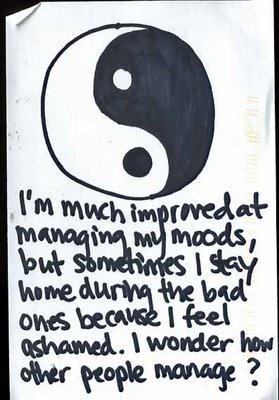 I'm much improved at
managing my moods,
but sometimes I stay
home during the bad
ones because I feel
ashamed. I wonder how
other people manage?